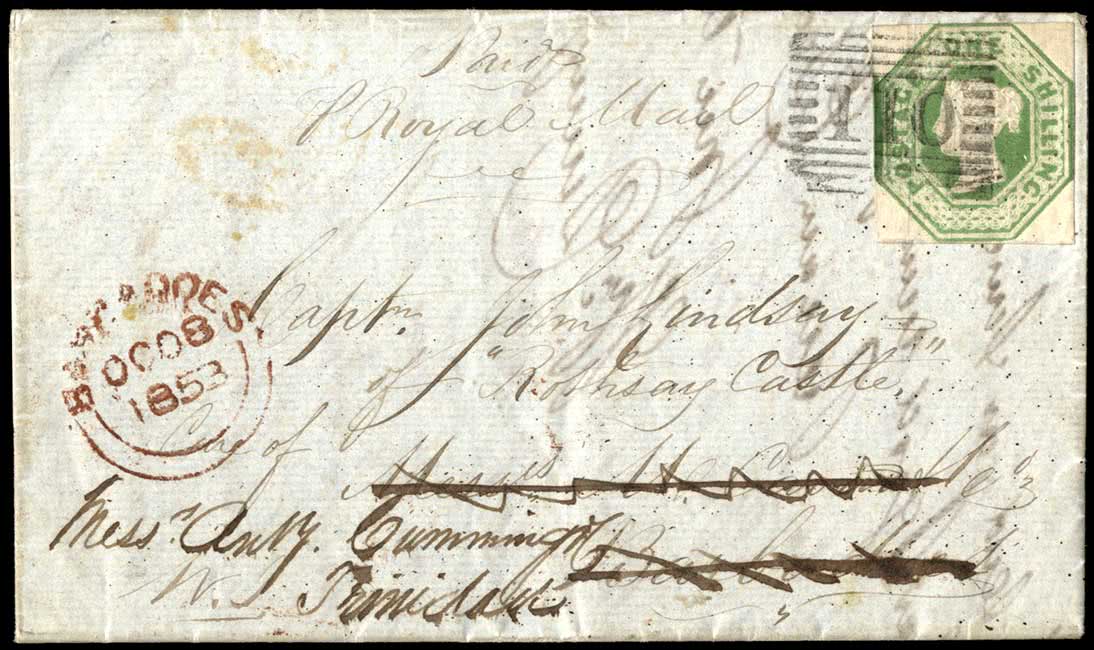 Paid
P Royal Mail
POSTAGE ONE SHILLING
Captn. John Lindsay
of "Rothsay Castle"
BARBADOES
OC 08
1853
Care of
Messrs
Messrs Anty. Cumming
Barbadoes
W. I. Trinidad